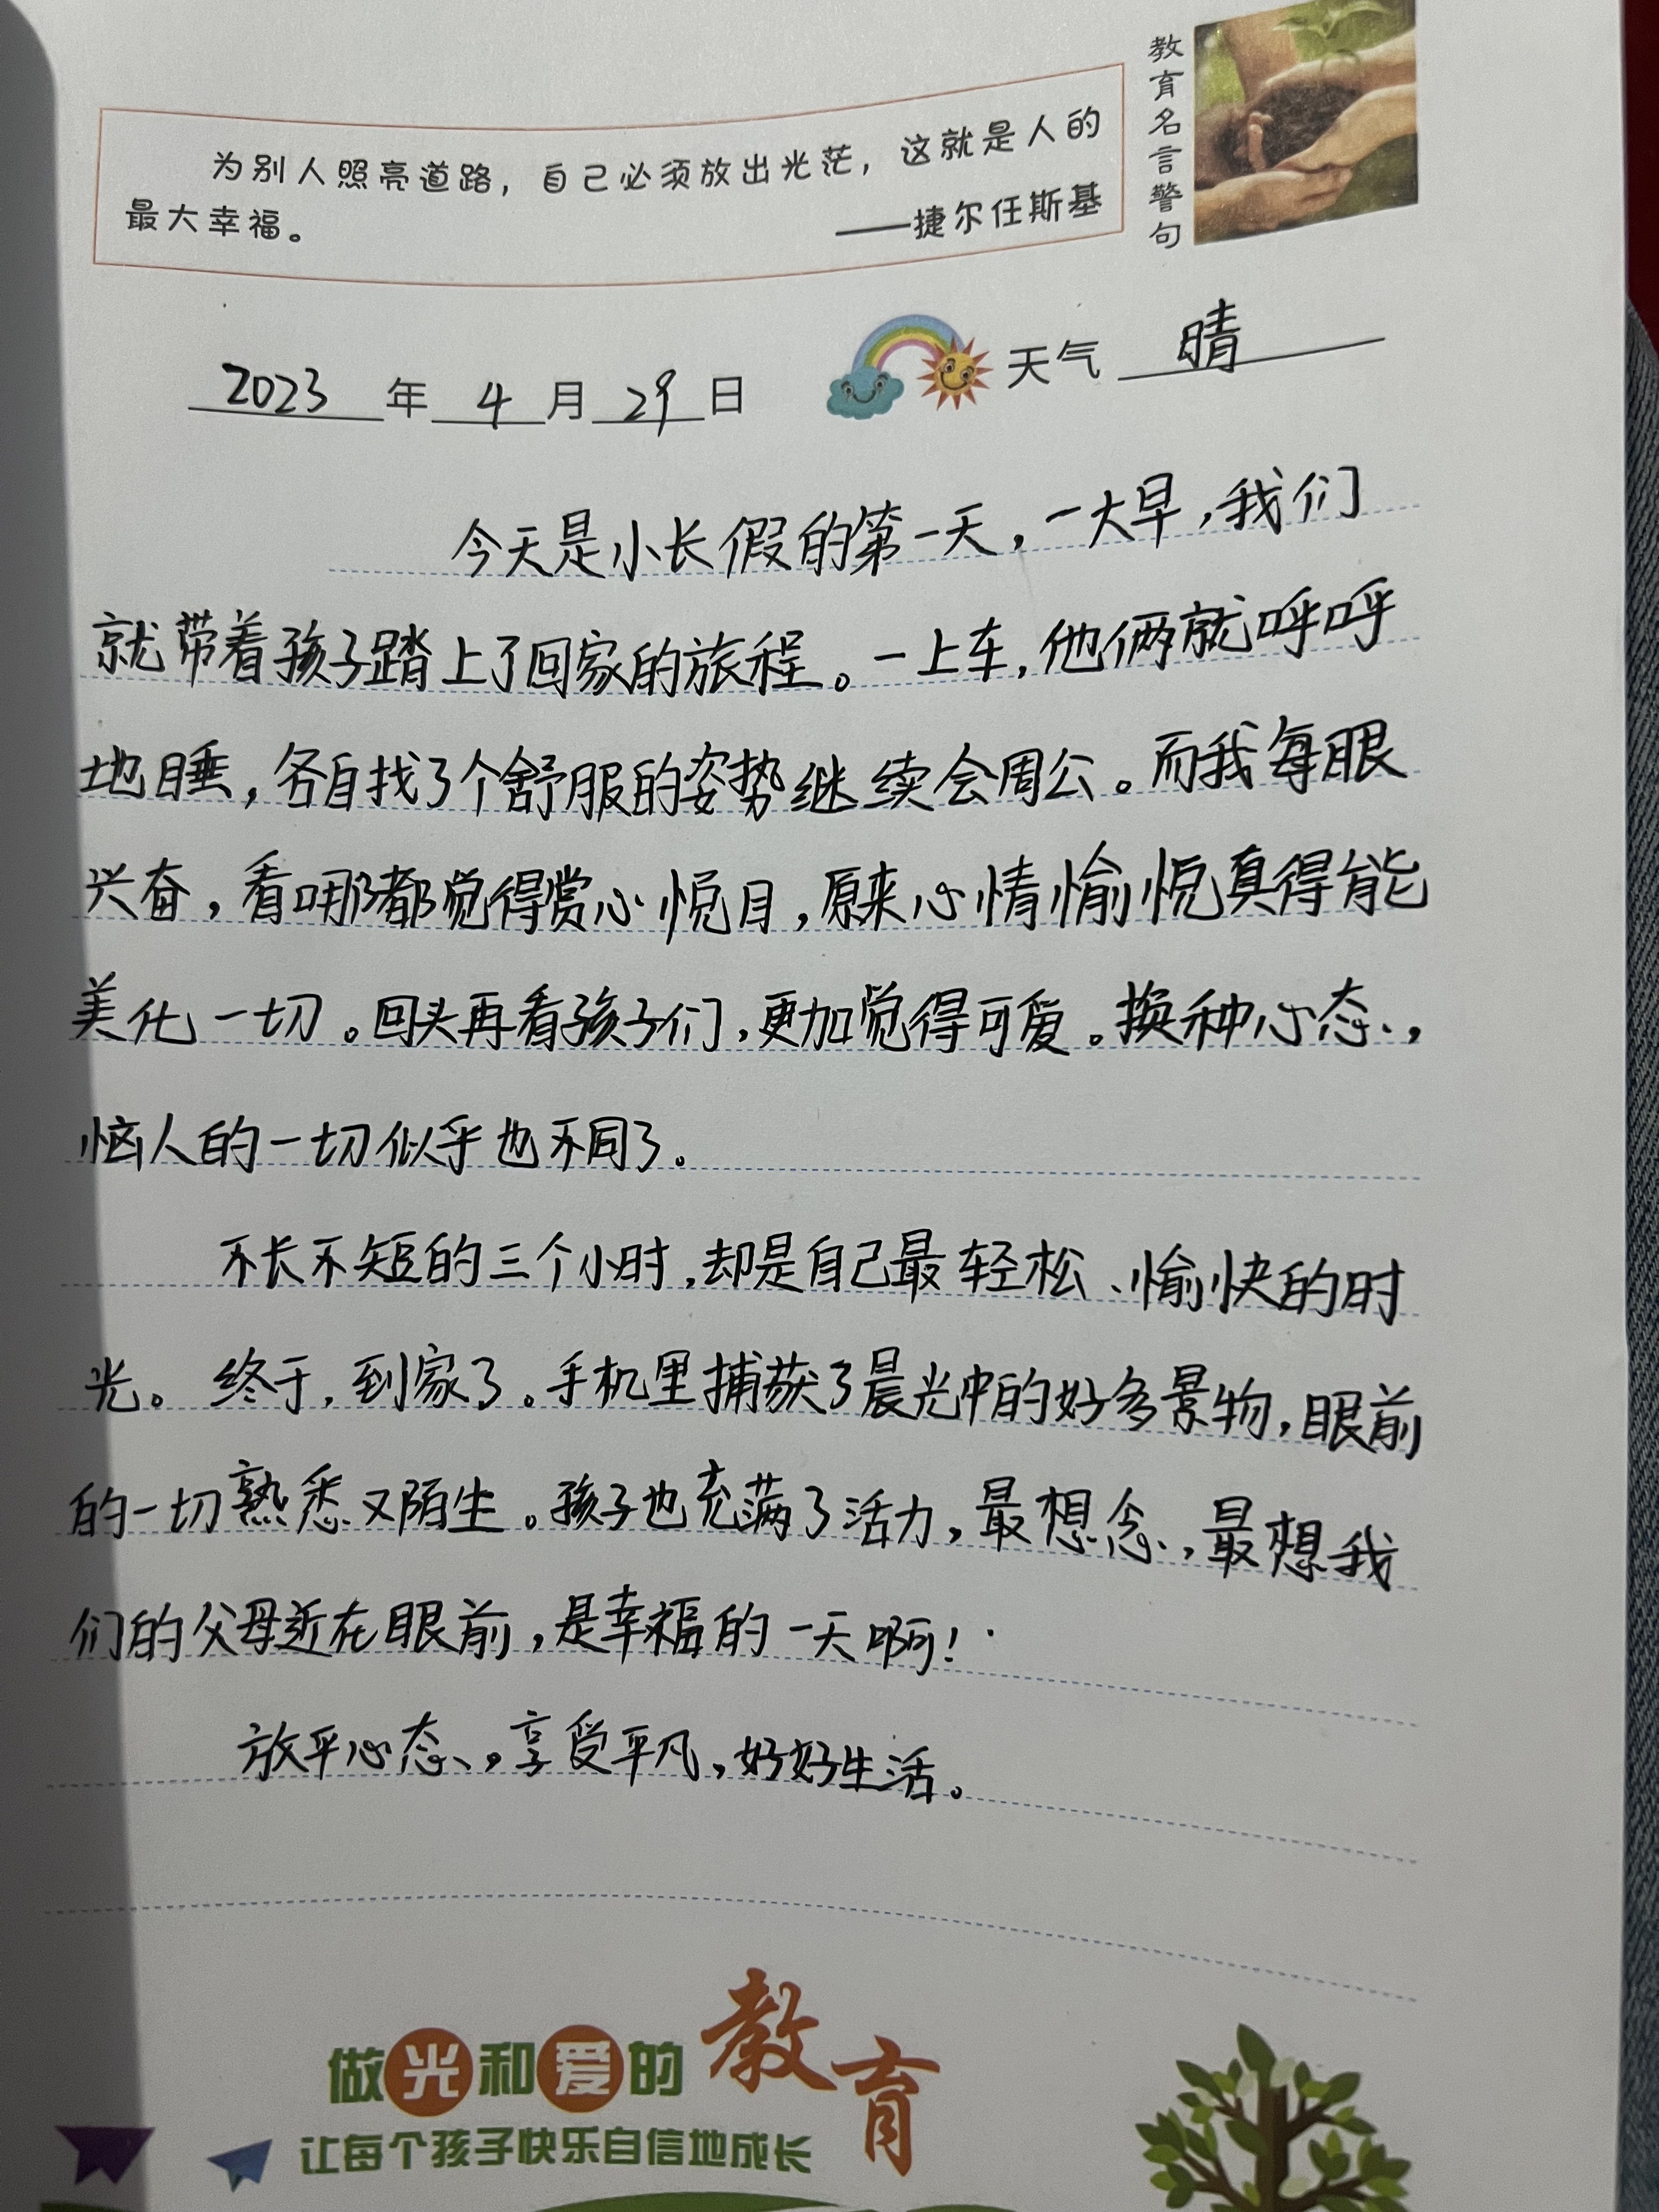 教育名言警句
为别人照亮道路，自己必须放出光茫，这就是人的
最大幸福。
——捷尔任斯基
2023年4月29日 天气 晴
今天是小长假的第一天，一大早，我们
就带着孩子踏上了回家的旅程。一上车，他俩就呼呼
地睡，各自找了个舒服的姿势继续会周公。而我每眼
兴奋，看哪都觉得赏心悦目，原来心情愉悦真得能
美化一切。回头再看孩子们，更加觉得可爱。换种心态，
恼人的一切似乎也不同了。
不长不短的三个小时，却是自己最轻松、愉快的时
光。终于，到家了。手机里捕获了晨光中的好多景物，眼前
的一切熟悉又陌生。孩子也充满了活力，最想念，最想我
们的父母近在眼前，是幸福的一天啊！
放平心态，享受平凡，好好生活。
做光和爱的教育
让每个孩子快乐自信地成长